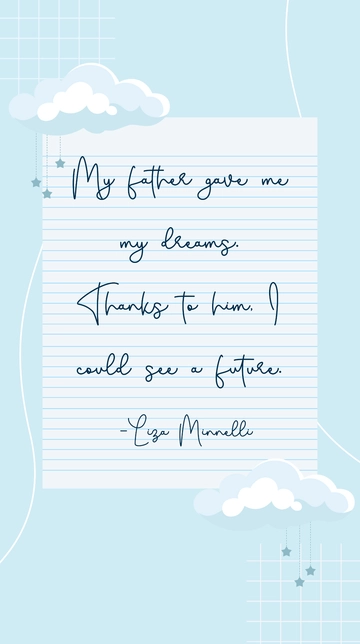 My father gave me
my dreams.
Thanks to him, I
could see a future.
-Liza Minnelli